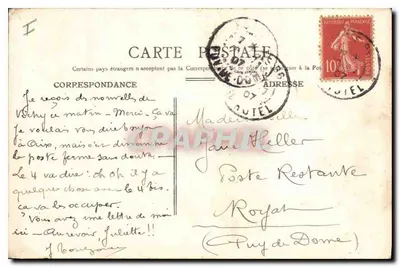 I
CARTE POSTALE
Certains pays étrangers n'acceptent pas la Correspondance
CORRESPONDANCE
ADRESSE
Je reçois des nouvelles de
Vichy ce matin - Merci - Ça va
Je voulais vous dire bonjour
à Aix, mais c'est dimanche
le poste ferme sans doute -
Le 4 va dire: oh oh il y a
quelque chose avec le 4 bis.
ça va les occuper.
Vous avez une lettre de moi
ici - Au revoir Juliette!!
Mademoiselle
Jane Heller
Poste Restante
Royat
(Puy de Dome)
REPUBLIQUE FRANÇAISE
10
POSTES
HOTEL
07
HOTEL
CPARAMA